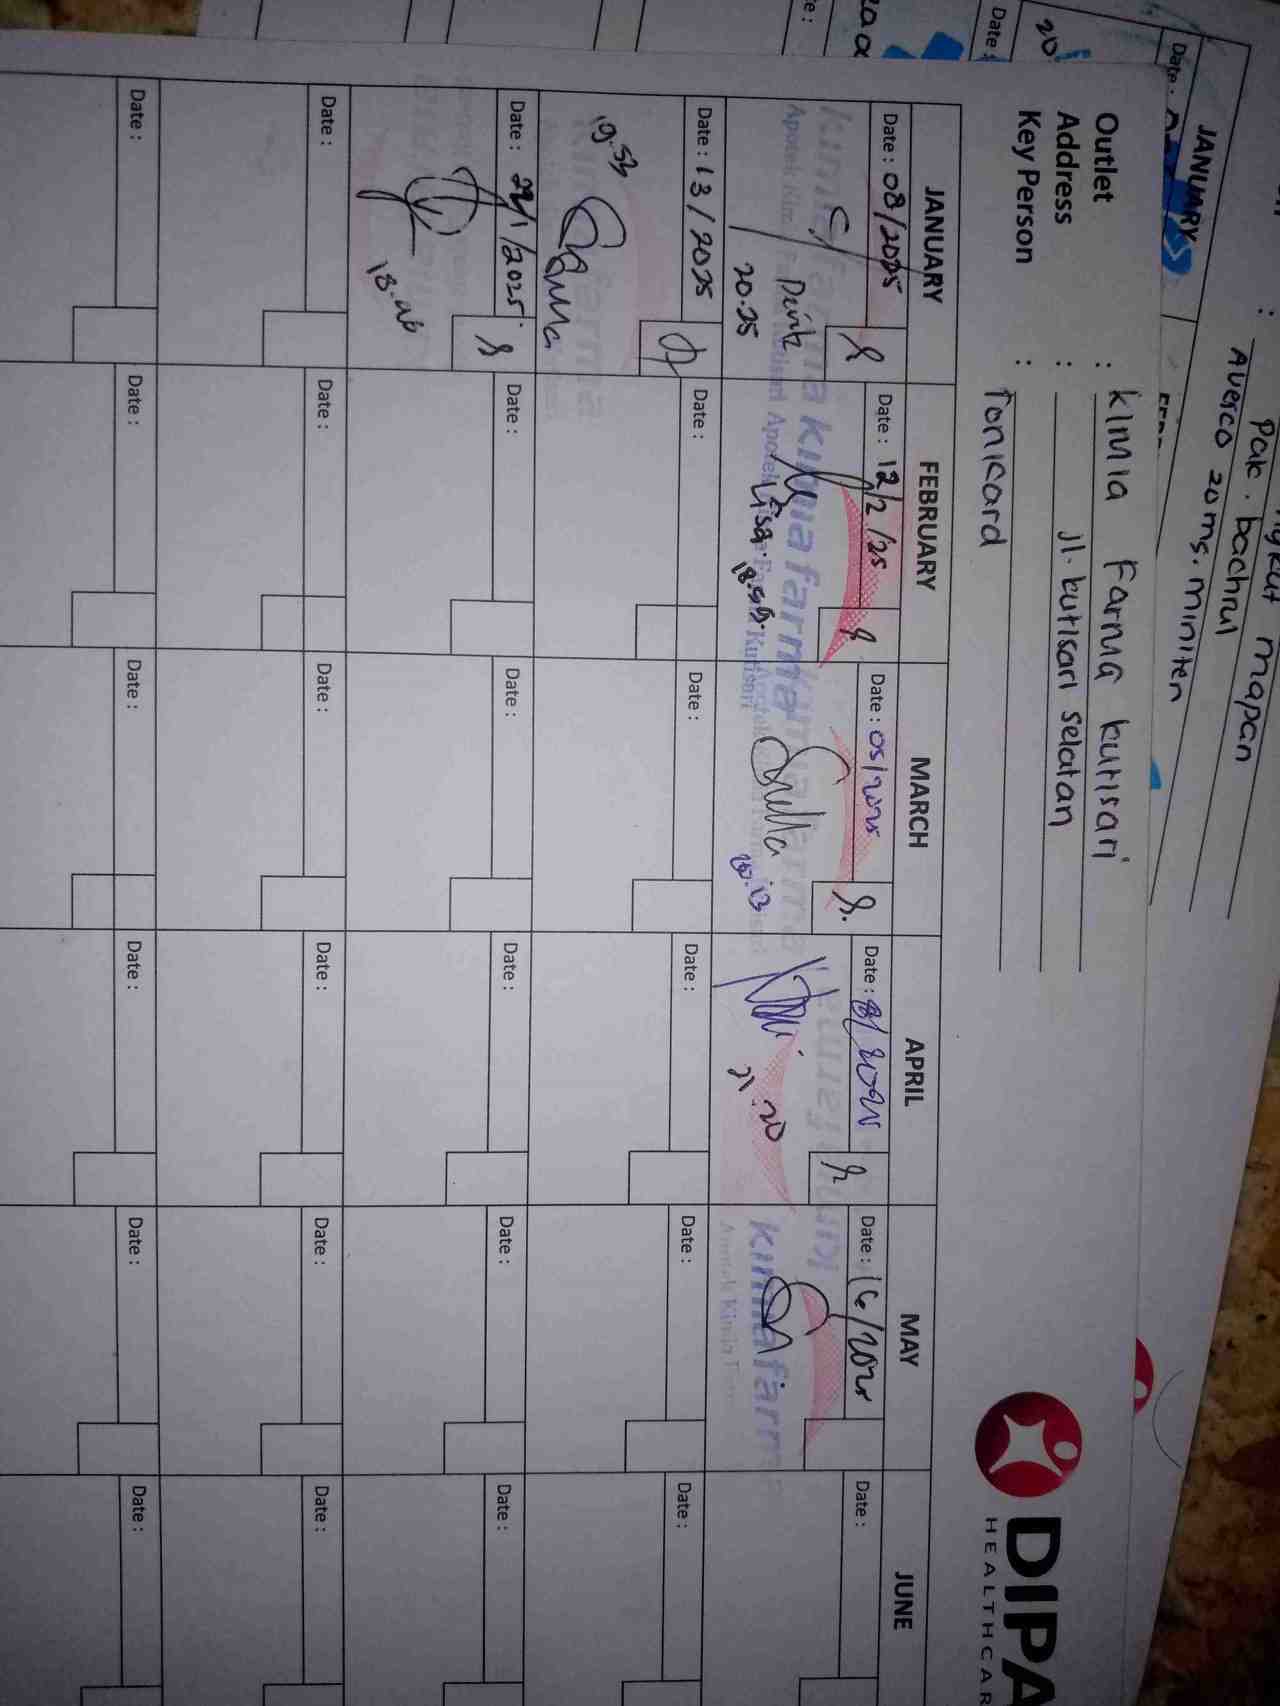 JANUARY
Date :
: Pak. bachrul
Averco 20 ms. miniten
mapan
Date :
20.
Outlet : kimia Farma kutisari
Address : jl. kutisari selatan
Key Person : Tonicard
DIPA
HEALTHCAR
JANUARY FEBRUARY MARCH APRIL MAY JUNE
Date : 08/2025 Date : 12/2/25 Date : 05/2025 Date : 8/2025 Date : 16/2025 Date :
kimia farma kimia farma
Lisa. Stella
20.25 18.59. 21.20
kimia farma
Apotek Kimia Farma
Date : 13/2025 Date : Date : Date : Date : Date :
19.53
Stella
Date : 22/1/2025 Date : Date : Date : Date : Date :
Date : Date : Date : Date : Date : Date :
Date : Date : Date : Date : Date : Date :